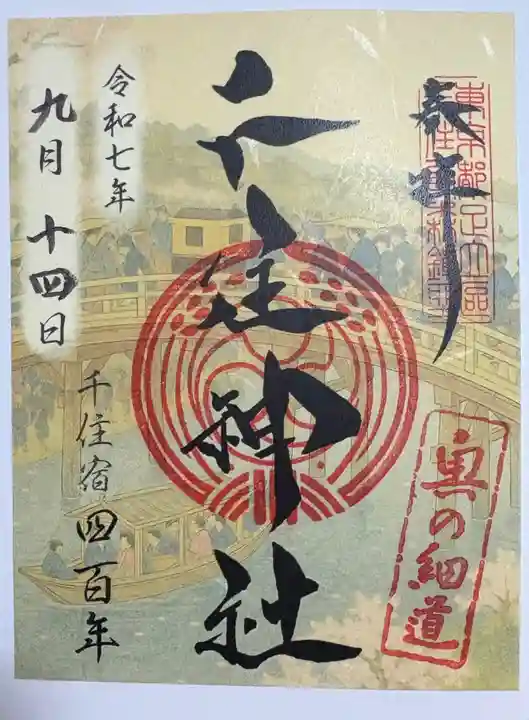 奉拝
東京都足立區
千住神社
奥の細道
令和七年
九月十四日
千住宿四百年